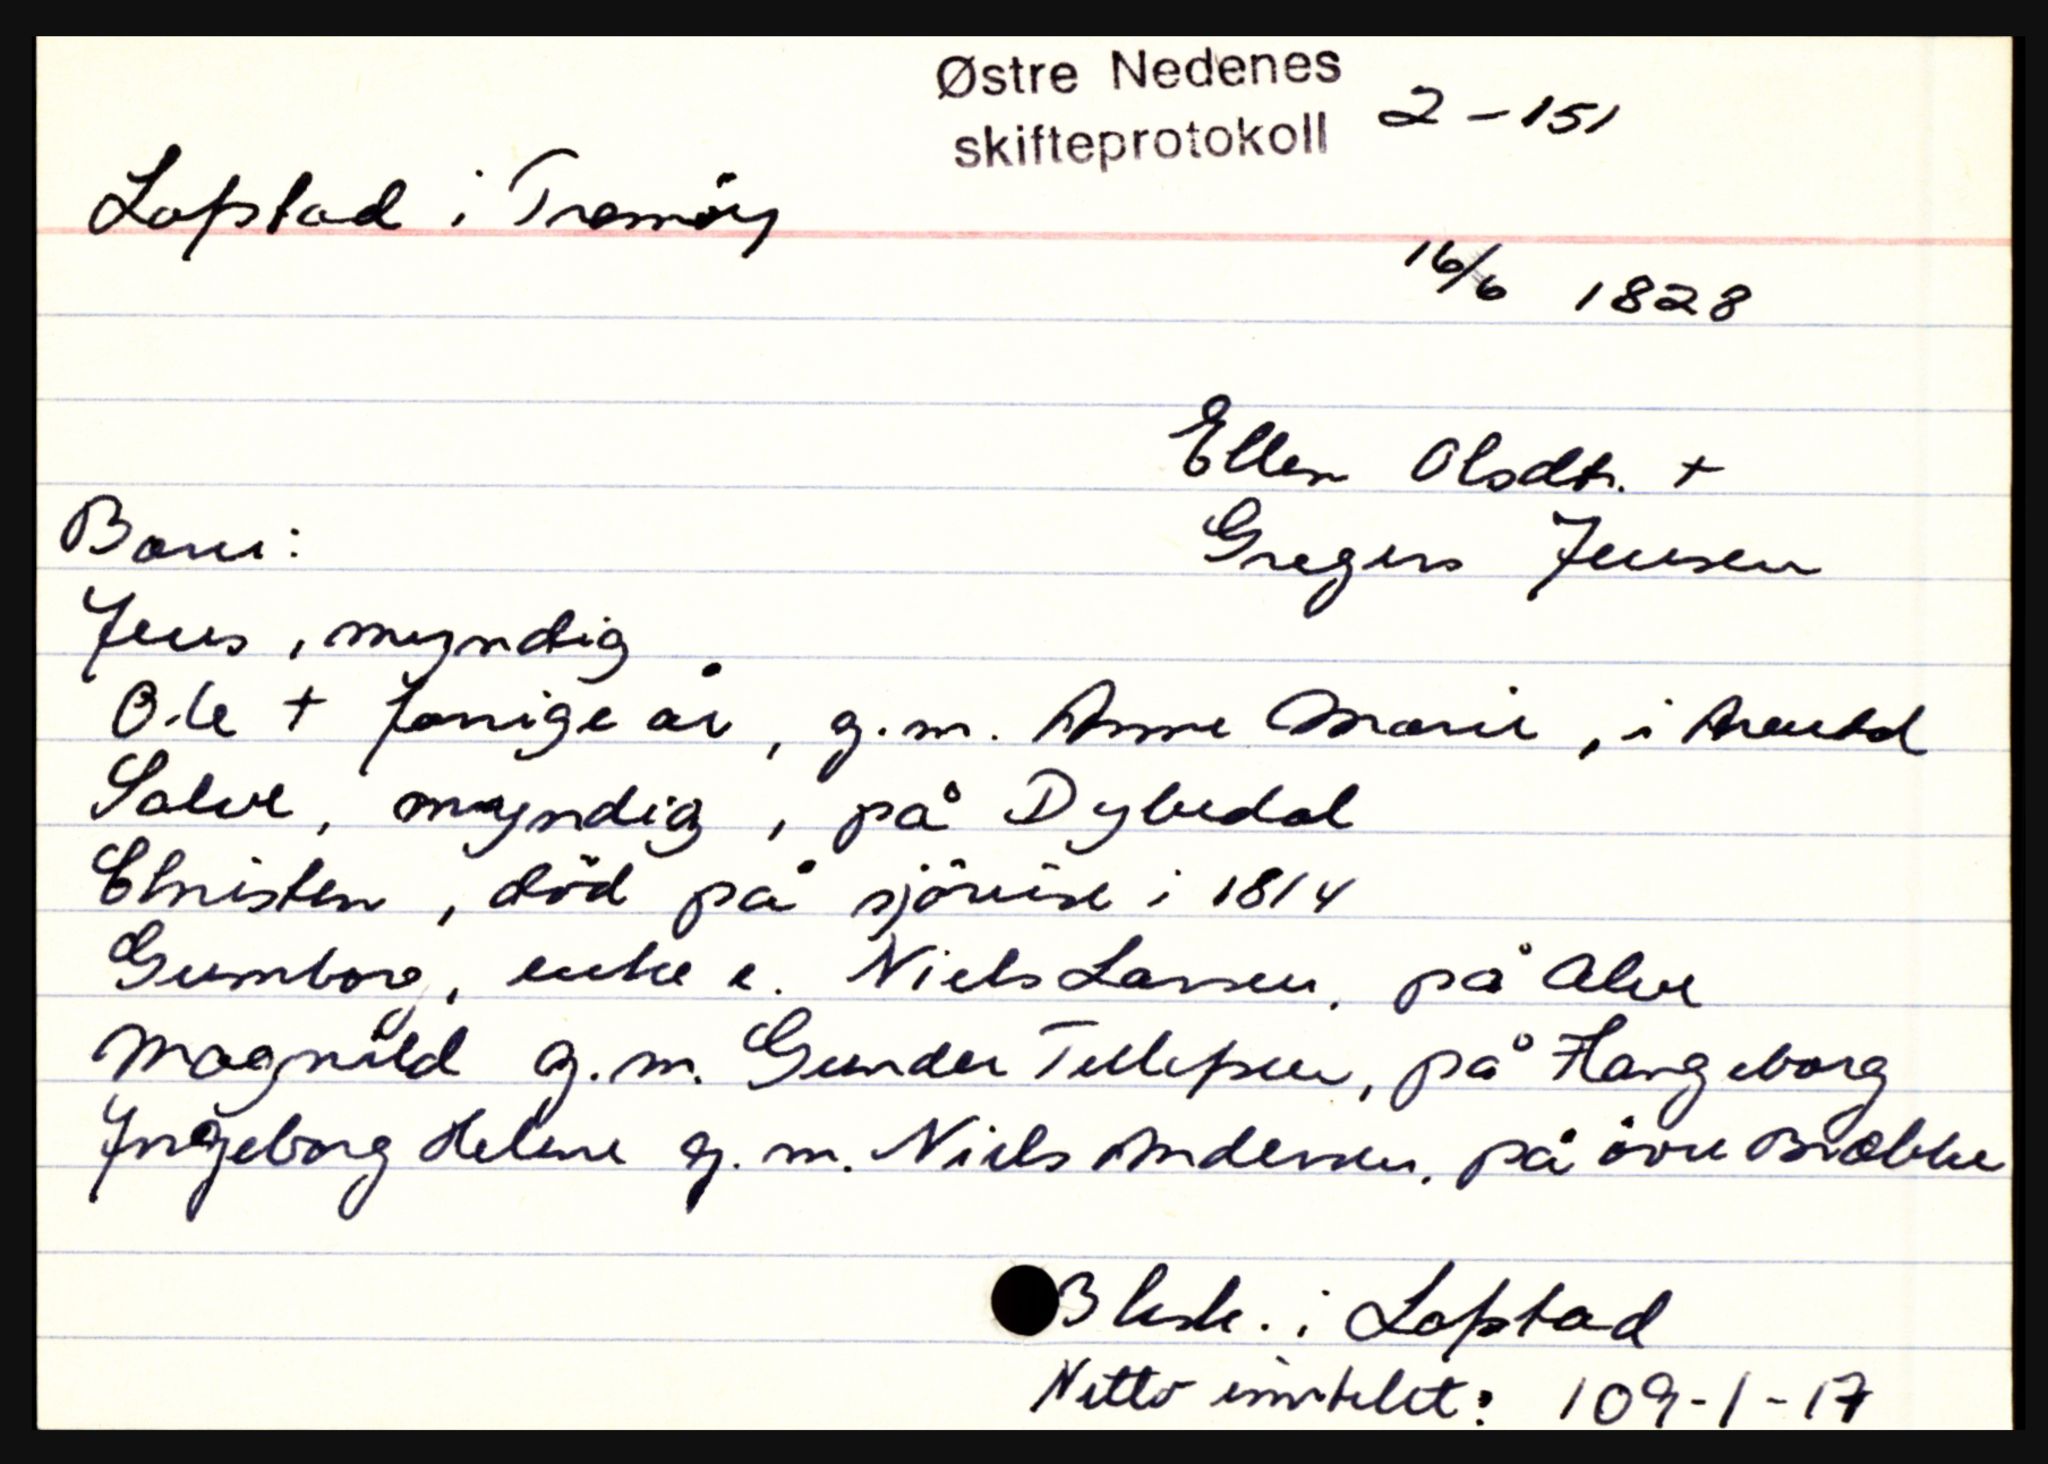 Østre Nedenes
skifteprotokoll 2-151
Lofstad i Tromöy
16/6 1828
Ellen Olsdtr. +
Gregers Jensen
Barn:
Jens, myndig
Ole + forrige år, g.m. Anne Marie, i Arendal
Salve, myndig, på Dybedal
Christen, död på sjöreise i 1814
Gumborg, enke e. Niels Larsen, på Alve
Magnild g.m. Gunder Tellefsen, på Hangeborg
Ingeborg Helene g.m. Niels Andersen, på övre Brække
3 lisk. i Lofstad
Netto : 109-1-17